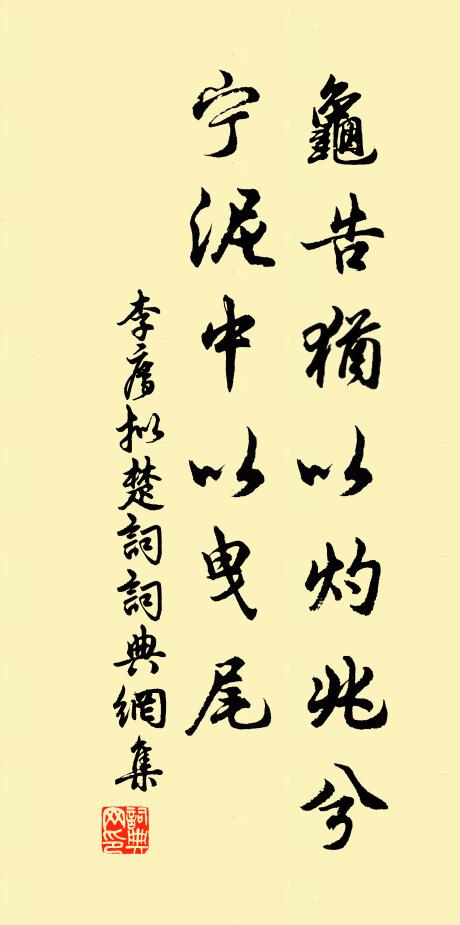 龜告猶以灼兆兮
宁泥中以曳尾
李廌拟楚詞詞典網集
詞典网印